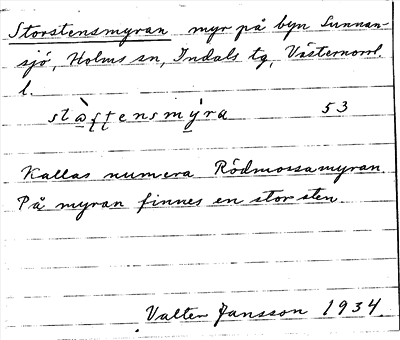 Storstensmyran myr på byn Sunnan-
sjö, Holms sn, Indals tg, Västernorrl.
l.
53
Kallas numera Rödmossamyran.
På myran finnes en stor sten.
Valter Jansson 1934.